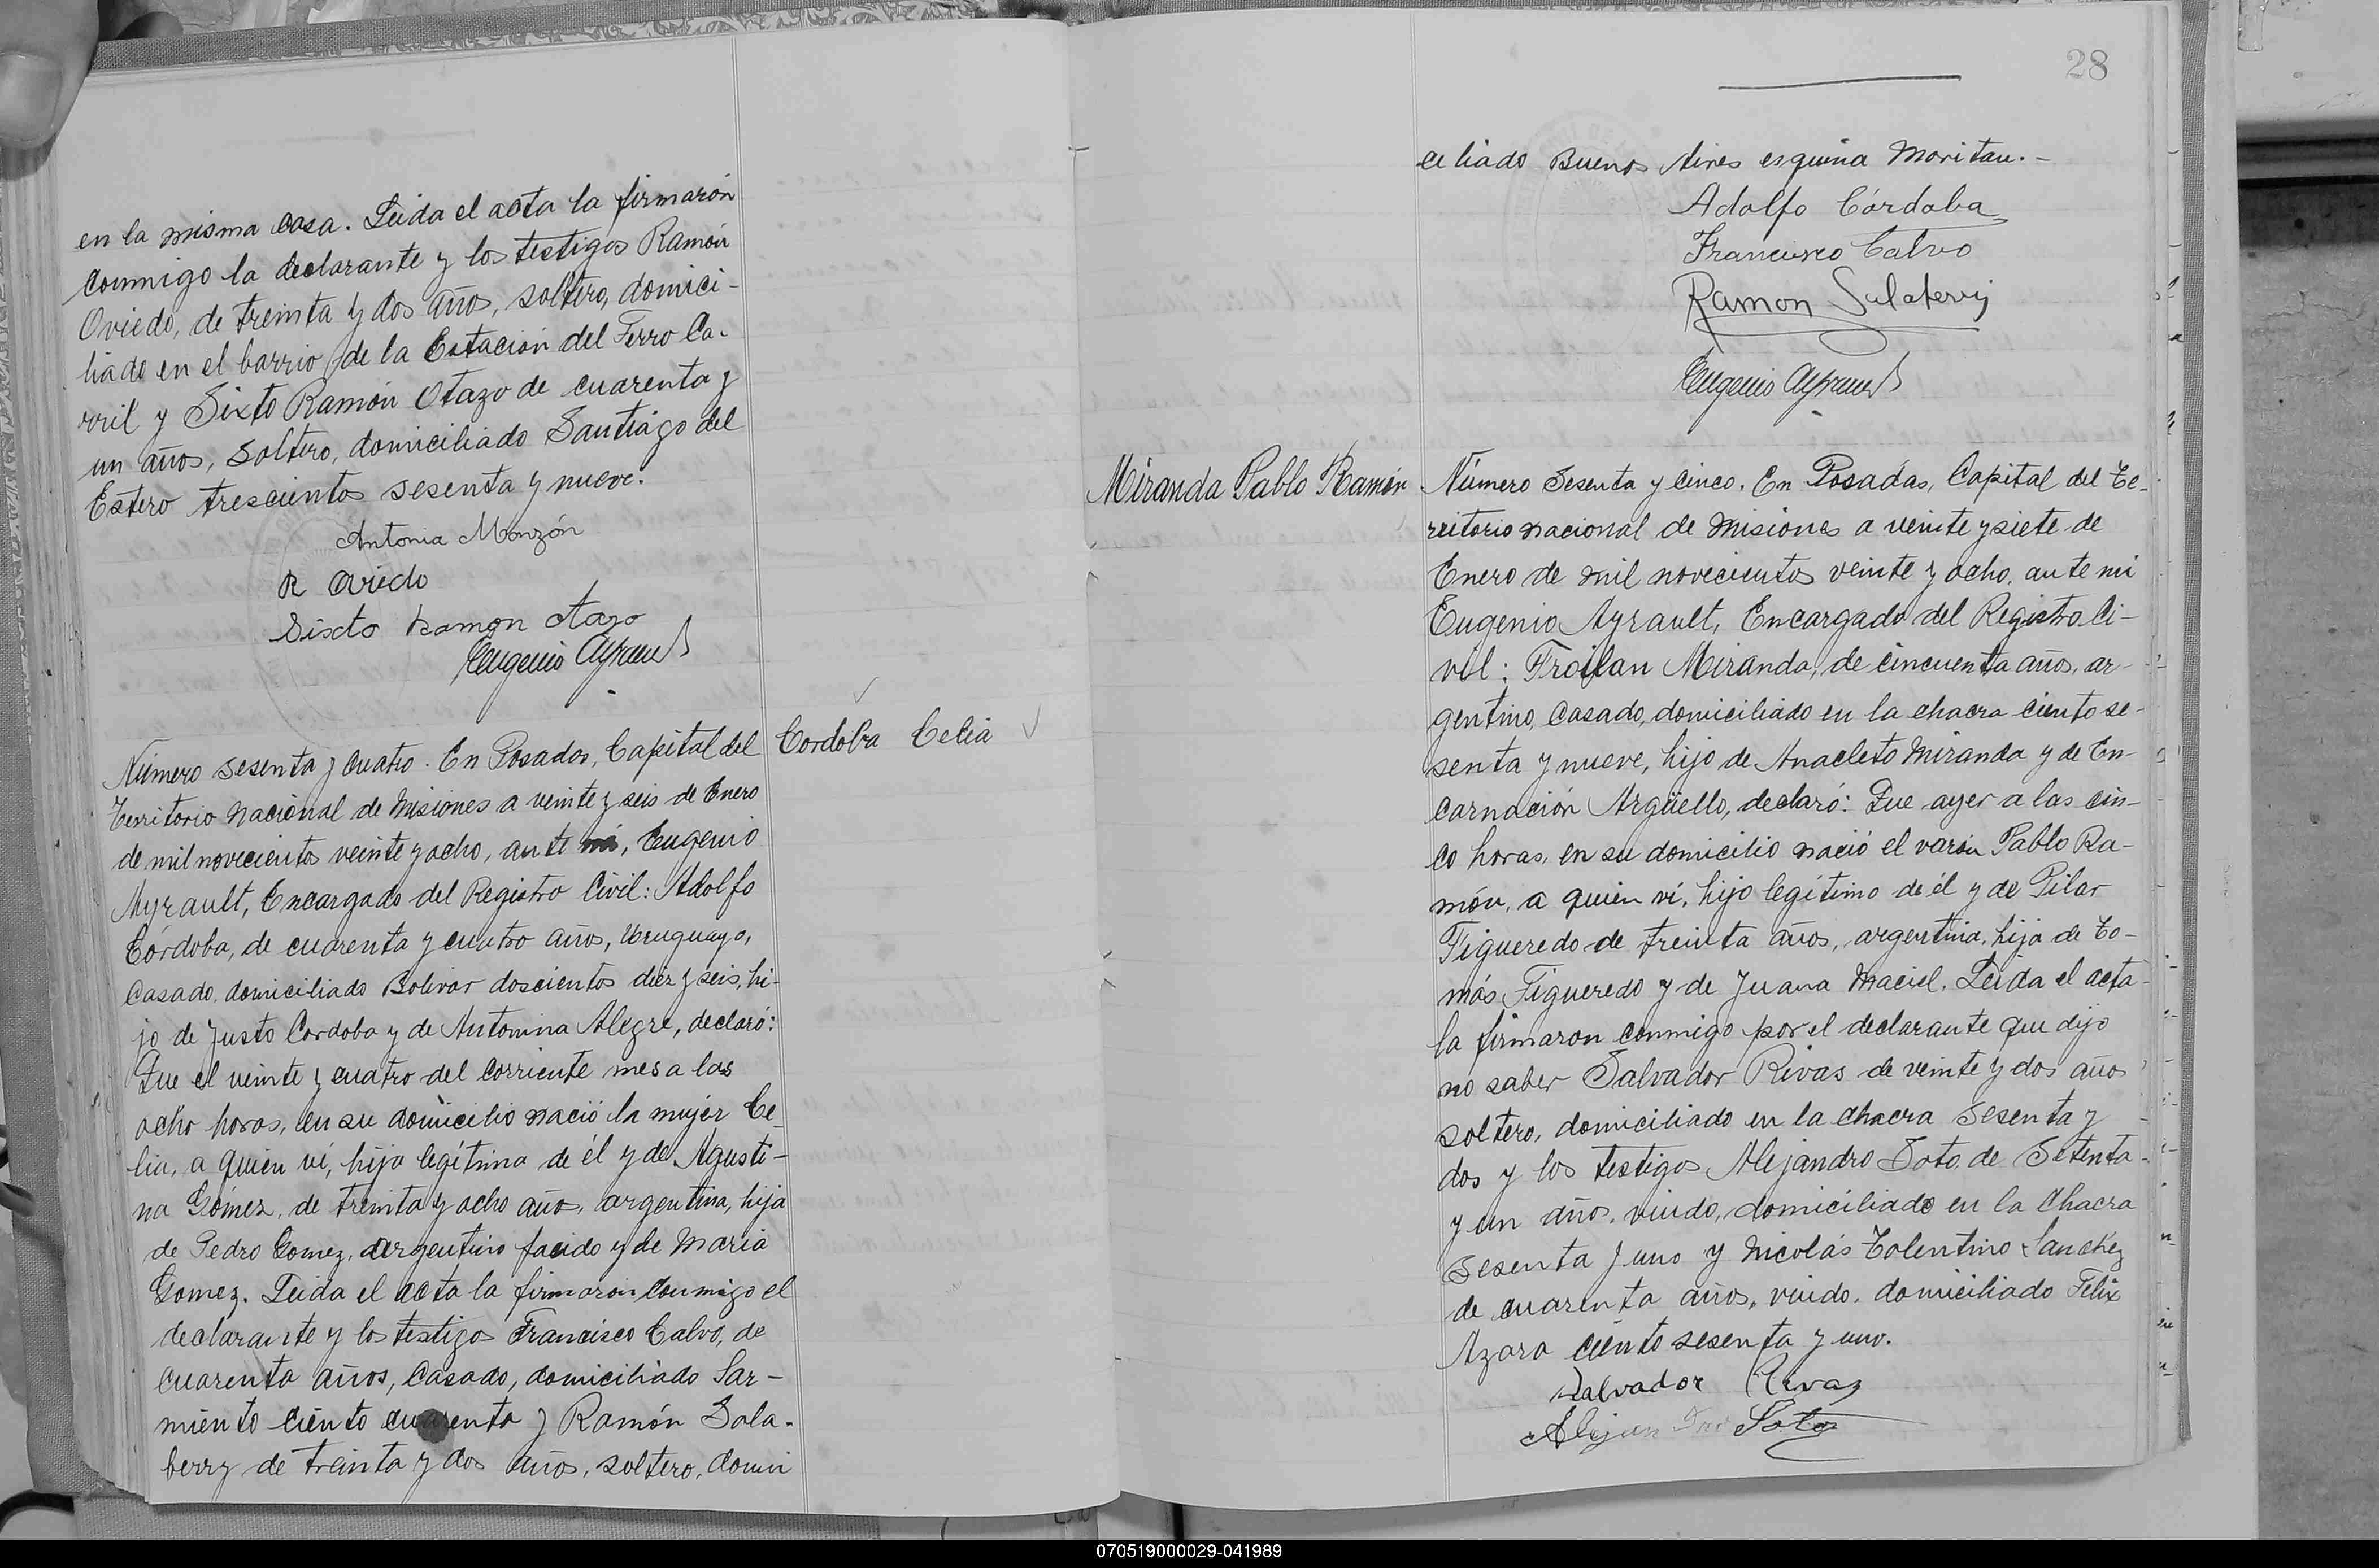 en la misma casa. Leida el acta la firmarón
conmigo la declarante y los testigos Ramón
Oviedo, de treinta y dos años, soltero, domici-
liado en el barrio de la Estación del Ferro Ca-
rril y Sixto Ramón Otazo de cuarenta y
un años, soltero, domiciliado Santiago del
Estero trescientos sesenta y nueve.
Antonia Monzón
R Oviedo
Sixto Ramon Otazo
Eugenio Ayrault
Número sesenta y cuatro. En Posadas, Capital del
Cordoba Celia
Territorio Nacional de Misiones a veinte y seis de Enero
de mil novecientos veinte y ocho, ante mi, Eugenio
Ayrault, Encargado del Registro Civil: Adolfo
Córdoba, de cuarenta y cuatro años, Uruguayo,
casado, domiciliado Bolivar doscientos diez y seis, hi-
jo de Justo Cordoba y de Antonina Alegre, declaró:
Que el veinte y cuatro del corriente mes a las
ocho horas, en su domicilio nació la mujer Ce-
lia, a quien ví, hija legítima de él y de Agusti-
na Gómez, de treinta y ocho años, argentina, hija
de Pedro Gomez, argentino y de Maria
Gomez. Leida el acta la firmaron conmigo el
declarante y los testigos Francisco Calvo, de
cuarenta años, casado, domiciliado Sar-
miento ciento cuarenta y Ramón Sala-
berry de treinta y dos años, soltero, domi
28
ciliado Buenos Aires esquina Moritan.-
Adolfo Córdoba
Francisco Calvo
Ramon Salaberry
Eugenio Ayrault
Miranda Pablo Ramón
Número Sesenta y cinco. En Posadas, Capital del Te-
rritorio nacional de Misiones a veinte y siete de
Enero de mil novecientos veinte y ocho, ante mi
Eugenio Ayrault, Encargado del Registro Ci-
vil: Froilan Miranda, de cincuenta años, ar-
gentino, casado, domiciliado en la chacra ciento se-
senta y nueve, hijo de Anacleto Miranda y de En-
carnación Argüello, declaró: Que ayer a las cin-
co horas, en su domicilio nació el varón Pablo Ra-
món, a quien ví, hijo legítimo de él y de Pilar
Figueredo de treinta años, argentina, hija de To-
más Figueredo y de Juana Maciel. Leida el acta
la firmaron conmigo por el declarante que dijo
no saber Salvador Rivas de veinte y dos años
soltero, domiciliado en la chacra sesenta y
dos y los testigos Alejandro Soto de Setenta
y un años, viudo, domiciliado en la Chacra
sesenta y uno y Nicolás Tolentino Sanchez
de cuarenta años, viudo, domiciliado Felix
Azara ciento sesenta y uno.
Salvador Rivas
Alejandro Soto
070519000029-041989